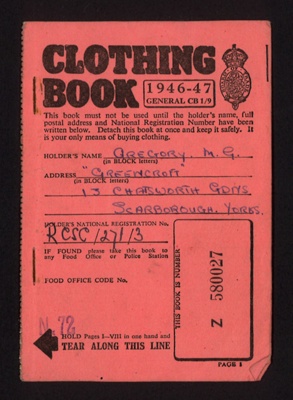 CLOTHING
BOOK
1946-47
GENERAL CB 1/9
This book must not be used until the holder's name, full
postal address and National Registration Number have been
written below. Detach this book at once and keep it safely. It
is your only means of buying clothing.
HOLDER'S NAME GREGORY, M. G.
(in BLOCK letters)
ADDRESS "GREENCROFT"
(in BLOCK letters)
13 CHATSWORTH GDNS,
SCARBOROUGH, YORKS.
HOLDER'S NATIONAL REGISTRATION No.
RCSC/271/3
IF FOUND please take this book to
any Food Office or Police Station
FOOD OFFICE CODE No.
THIS BOOK IS NUMBER
Z 580027
N. 72
HOLD Pages I—VIII in one hand and
TEAR ALONG THIS LINE
PAGE I